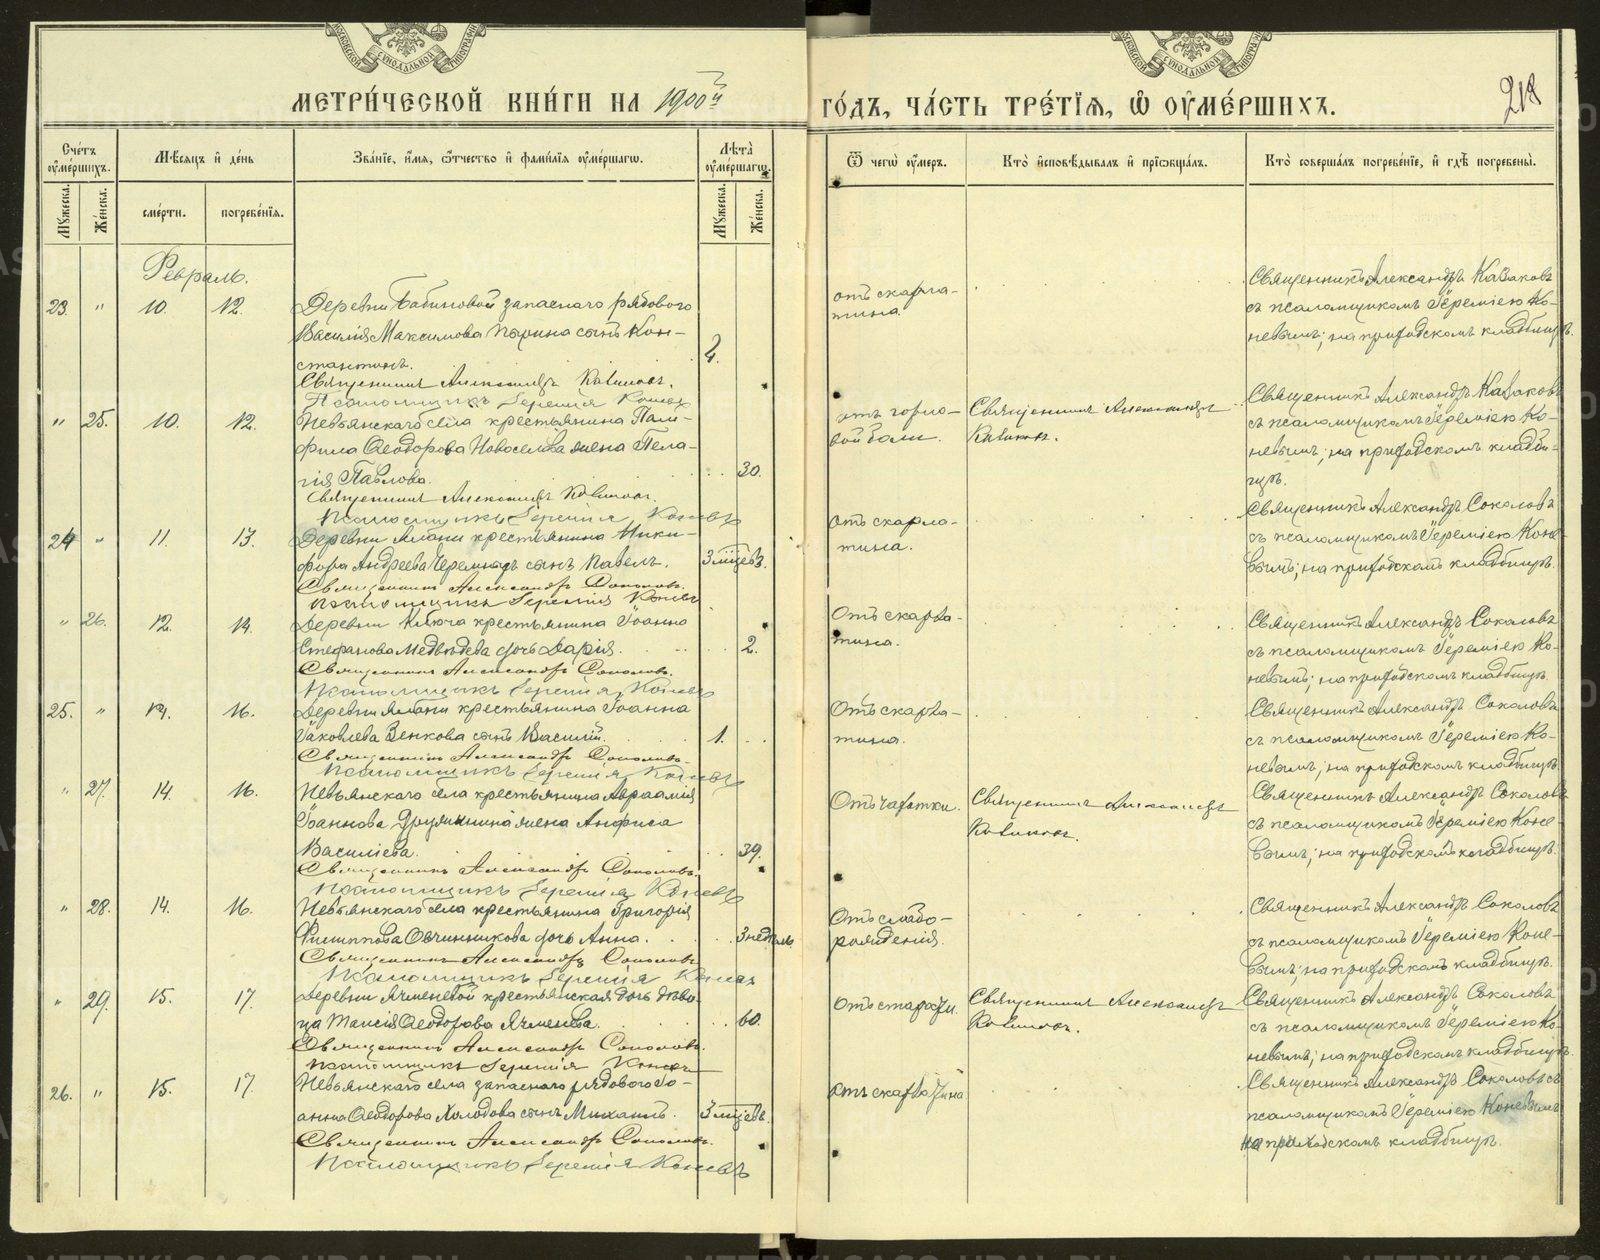 МЕТРИ́ЧЕСКОЙ КНИ́ГИ НА 1900й
ГО́ДЪ, ЧА́СТЬ ТРЕ́ТІѦ, Ѡ҆ ОУ҆МЕ́РШИХЪ.
218
Сче́тъ оу҆ме́ршихъ.
Мѣ́сяцъ и҆ де́нь
Зва́нїе, и҆́мя, ѻ҆́тчество и҆ фами́лїя оу҆ме́ршагѡ.
Лѣта̀ оу҆ме́ршагѡ.
Ѿ чегѡ̀ оу҆́меръ.
Кто̀ и҆сповѣ́дывалъ и҆ прїѡбща́лъ.
Кто̀ соверша́лъ погребе́нїе, и҆ гдѣ̀ погребены̀.
Мꙋ́жеска.
Же́нска.
сме́рти.
погребе́нїя.
Мꙋ́жеска.
Же́нска.
Февраль.
23. " 10. 12.
Деревни Бабиновой запаснаго рядового
Василія Максимова сынъ Кон-
стантинъ. 2.
Священникъ Александръ
Псаломщикъ Іеремія Коневъ
отъ скарла-
тина.
Священникъ Александръ Казаковъ
съ псаломщикомъ Іереміею Ко-
невымъ; на приходскомъ кладбищѣ.
" 25. 10. 12.
Невьянскаго села крестьянина Пам-
фила Ѳеодорова Новоселова жена Пела-
гія Павлова. 30.
Священникъ Александръ
Псаломщикъ Іеремія Коневъ
отъ горло-
вой боли.
Священникъ Александръ
Священникъ Александръ Казаковъ
съ псаломщикомъ Іереміею Ко-
невымъ; на приходскомъ кладби-
щѣ.
24 " 11. 13.
Деревни Ялани крестьянина Ники-
фора Андреева сынъ Павелъ. 3 мцев.
Священникъ Александръ Соколовъ.
Псаломщикъ Іеремія Коневъ
отъ скарла-
тина.
Священникъ Александръ Соколовъ
съ псаломщикомъ Іереміею Коне-
вымъ; на приходскомъ кладбищѣ.
" 26. 12. 14.
Деревни Ключа крестьянина Іоанна
Стефанова Медвѣдева дочь Дарія. 2.
Священникъ Александръ Соколовъ.
Псаломщикъ Іеремія Коневъ
Отъ скарла-
тина.
Священникъ Александръ Соколовъ
съ псаломщикомъ Іереміею Ко-
невымъ; на приходскомъ кладбищѣ.
25. " 14. 16.
Деревни Ялани крестьянина Іоанна
Іаковлева Зенкова сынъ Василій. 1.
Священникъ Александръ Соколовъ.
Псаломщикъ Іеремія Коневъ
Отъ скарла-
тина.
Священникъ Александръ Соколовъ
съ псаломщикомъ Іереміею Ко-
невымъ; на приходскомъ кладбищѣ.
" 27. 14. 16.
Невьянскаго села крестьянина Авраамія
Іоаннова Дружинина жена Анфиса
Василіева. 39.
Священникъ Александръ Соколовъ.
Псаломщикъ Іеремія Коневъ
Отъ чахотки.
Священникъ Александръ
Священникъ Александръ Соколовъ
съ псаломщикомъ Іереміею Коне-
вымъ; на приходскомъ кладбищѣ.
" 28. 14. 16.
Невьянскаго села крестьянина Григорія
Филиппова Овчинникова дочь Анна. 3 недѣль
Священникъ Александръ Соколовъ
Псаломщикъ Іеремія Коневъ
Отъ слабо-
рожденія.
Священникъ Александръ Соколовъ
съ псаломщикомъ Іереміею Коне-
вымъ; на приходскомъ кладбищѣ.
" 29. 15. 17.
Деревни Ячменевой крестьянская дочь дѣви-
ца Таисія Ѳеодорова Ячменева. 60.
Священникъ Александръ Соколовъ.
Псаломщикъ Іеремія Коневъ
Отъ старости.
Священникъ Александръ
Священникъ Александръ Соколовъ
съ псаломщикомъ Іереміею Ко-
невымъ; на приходскомъ кладбищѣ.
26. " 15. 17.
Невьянскаго села запаснаго рядового Іо-
анна Ѳеодорова Холодова сынъ Михаилъ. 3 мцев.
Священникъ Александръ Соколовъ.
Псаломщикъ Іеремія Коневъ
отъ скарлатина
Священникъ Александръ Соколовъ съ
псаломщикомъ Іереміею Коневымъ
на приходскомъ кладбищѣ.